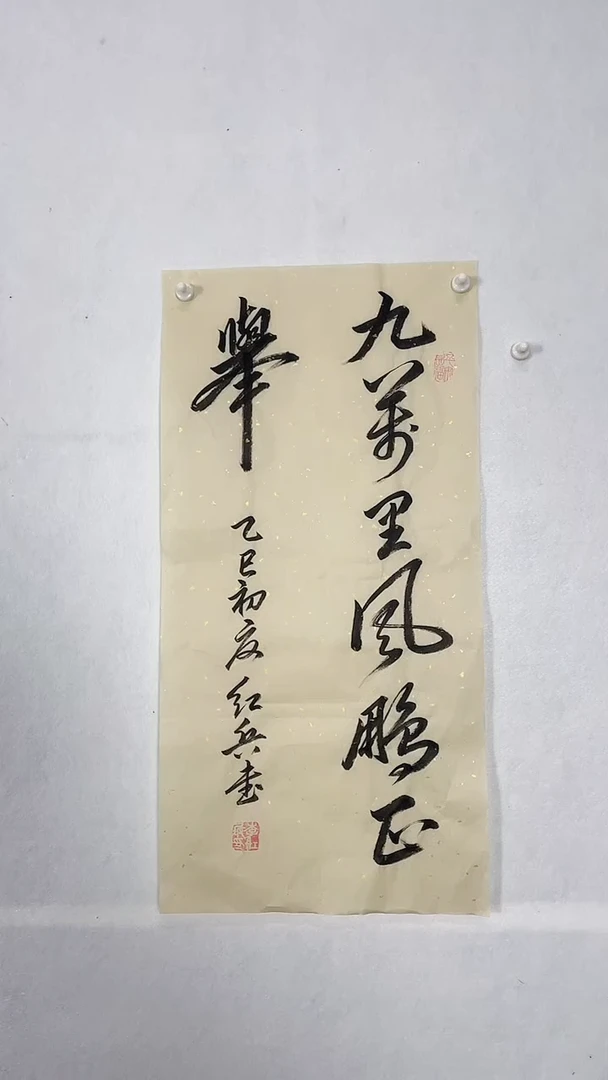 九萬里風鵬正
舉
乙巳初夏红兵書